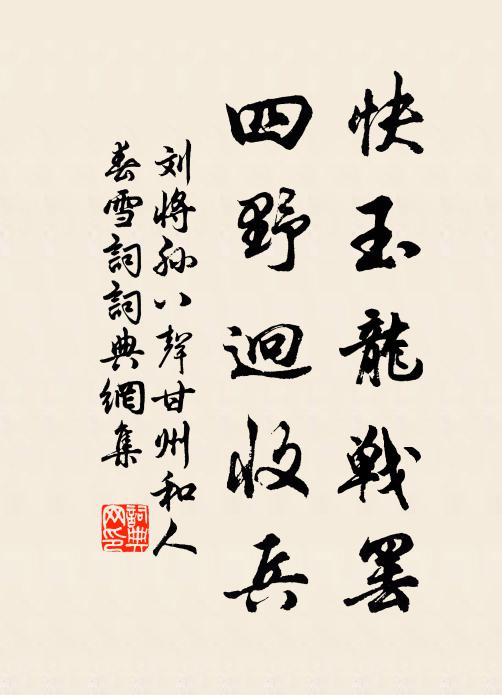 快玉龍戰罢
四野迥收兵
刘將孫八聲甘州和人
春雪詞詞典網集
詞典
网印